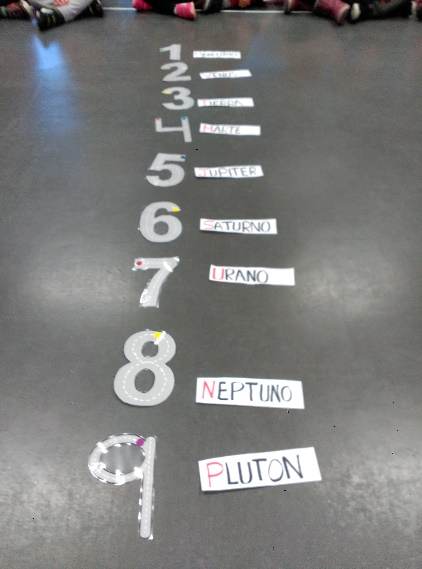 1 MERCURIO
2 VENUS
3 TIERRA
4 MARTE
5 JUPITER
6 SATURNO
7 URANO
8 NEPTUNO
9 PLUTON